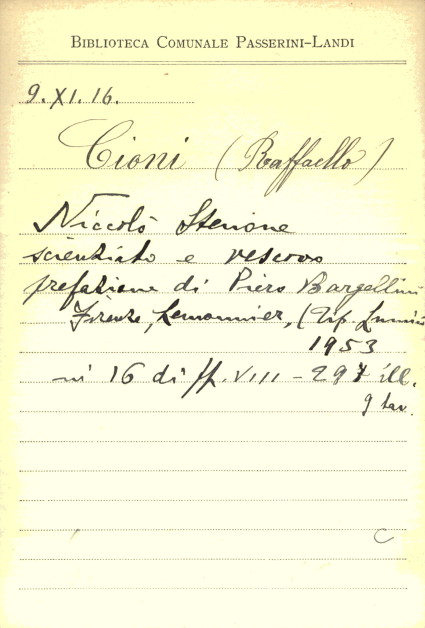 BIBLIOTECA COMUNALE PASSERINI-LANDI
9. XI. 16.
Cioni (Raffaello)
Niccolò Stenone
scienziato e vescovo
prefazione di Piero Bargellini
Firenze, Lemonnier, (Tip.
1953
in 16 di pp. VIII - 297 ill.
9 tav.
C